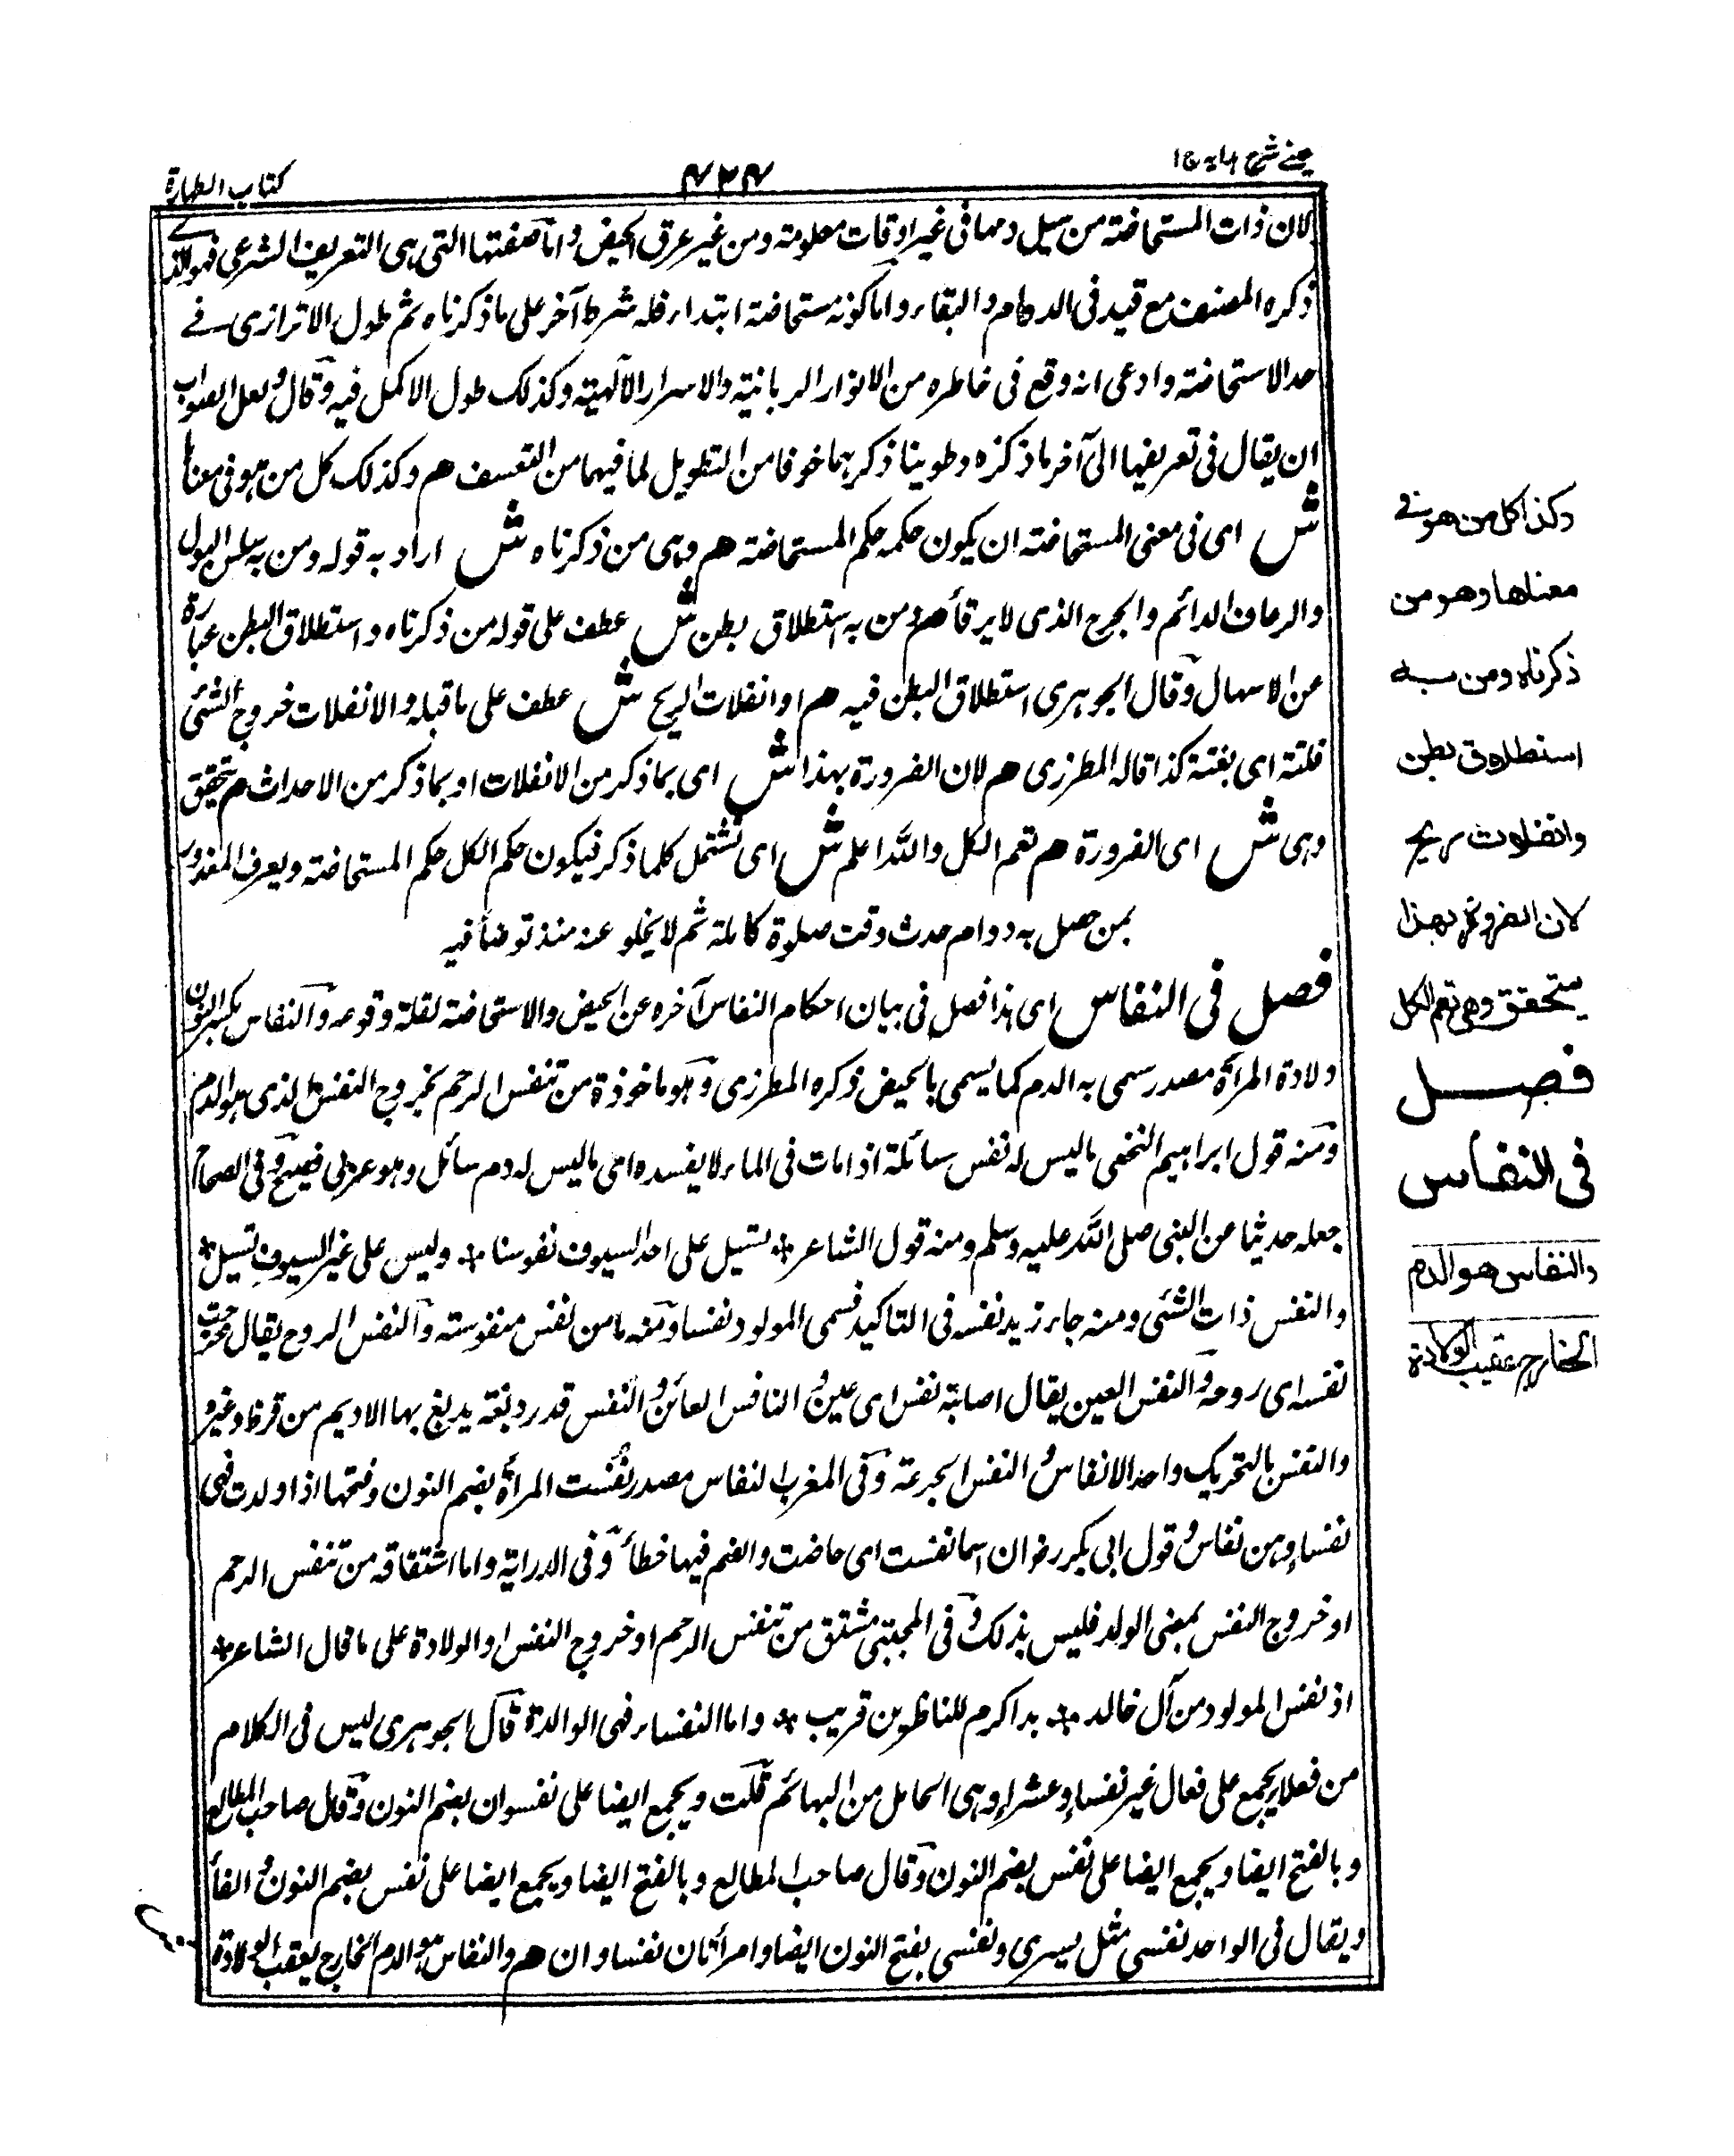 عینی شرح هدایه ج ۱
۴۲۴
كتاب الطهارة
لان ذات المستحاضة من يسيل دمها فى غير اوقات معلومة ومن غير عرق الحيض واما صفتها التى هى التعريف الشرعى فهو الذے
ذكره المصنف مع قيد فى الدوام والبقاء واما كونه مستحاضة ابتداء فله شرط آخر على ما ذكرناه ثم طول الاترازى فے
حد الاستحاضة وادعى انه وقع فى خاطره من الانوار الربانية والاسرار الالهية وكذلك طول الاكمل فيه وقال ولعل الصواب
ان يقال فى تعريفها الى آخر ما ذكره وطوينا ذكرهما خوفا من التطويل لما فيهما من التعسف هم وكذلك كل من هو فى معناها
ش اى فى معنى المستحاضة ان يكون حكمه حكم المستحاضة هم وهى من ذكرناه ش اراد به قوله ومن به سلس البول
والرعاف الدائم والجرح الذى لا يرقأ هم ومن به استطلاق بطن ش عطف على قوله من ذكرناه واستطلاق البطن عبارة
عن الاسهال وقال الجوهرى استطلاق البطن فيه هم او انفلات الريح ش عطف على ما قبله والانفلات خروج الشئ
فلتة اى بغتة كذا قاله المطرزى هم لان الضرورة بهذا ش اى بما ذكر من الانفلات او بما ذكر من الاحداث هم تتحقق
وهى ش اى الضرورة هم تعم الكل والله اعلم ش اى تشتمل كلما ذكر فيكون حكم الكل حكم المستحاضة ويعرف المعذور
بمن حصل به دوام حدث وقت صلوة كاملة ثم لا يخلو عنه منذ توضأ فيه
فصل فى النفاس اى هذا فصل فى بيان احكام النفاس آخره عن الحيض والاستحاضة لقلة وقوعه والنفاس بكسر النون
ولادة المرأة مصدر سمى به الدم كما يسمى بالحيض ذكره المطرزى وهو ماخوذة من تنفس الرحم بخروج النفس الذى هو الدم
ومنه قول ابراهيم النخعى ما ليس له نفس سائلة اذا مات فى الماء لا يفسده اى ما ليس له دم سائل وهو عربى فصيح وفى الصحاح
جعله حديثا عن النبى صلى الله عليه وسلم ومنه قول الشاعر * تسيل على احد السيوف نفوسنا * وليس على غير السيوف تسيل *
والنفس ذات الشئ ومنه جاء زيد نفسه فى التاكيد فسمى المولود نفسا ومنه ما من نفس منفوسته والنفس الروح يقال خرجت
نفسه اى روحه والنفس العين يقال اصابة نفس اى عين والنافس العائن والنفس قدر دبغة يدبغ بها الاديم من قرظ وغيره
والنفس بالتحريك واحد الانفاس والنفس الجرعة وفى المغرب النفاس مصدر نفست المرأة بضم النون وفتحها اذا ولدت فهى
نفساء وهن نفاس وقول ابى بكر رض ان اسما نفست اى حاضت والضم فيها خطأ وفى الدراية واما اشتقاقه من تنفس الرحم
او خروج النفس بمعنى الولد فليس بذلك وفى المجتبى مشتق من تنفس الرحم او خروج النفس او الولادة على ما قال الشاعر *
اذ نفس المولود من آل خالد * بدا كرم للناظرين قريب * واما النفساء فهى الوالدة قال الجوهرى ليس فى الكلام
من فعلاء يجمع على فعال غير نفساء وعشراء وهى الحامل من البهائم قلت ويجمع ايضا على نفسوان بضم النون وقال صاحب المطالع
وبالفتح ايضا ويجمع ايضا على نفس بضم النون وقال صاحب المطالع وبالفتح ايضا ويجمع ايضا على نفس بضم النون والفأ
ويقال فى الواحد نفسى مثل يسرى ونفسى بفتح النون ايضا وامرأتان نفساوان هم والنفاس هو الدم الخارج يعقب الولادة
وكذا كل من هو فے
معناها وهو من
ذكرناه ومن به
استطلاق بطن
وانفلات ريح
لان الضرورة بهذا
يتحقق وهى تعم الكل
فصل
فى النفاس
والنفاس هو الدم
الخارج عقيب الولادة